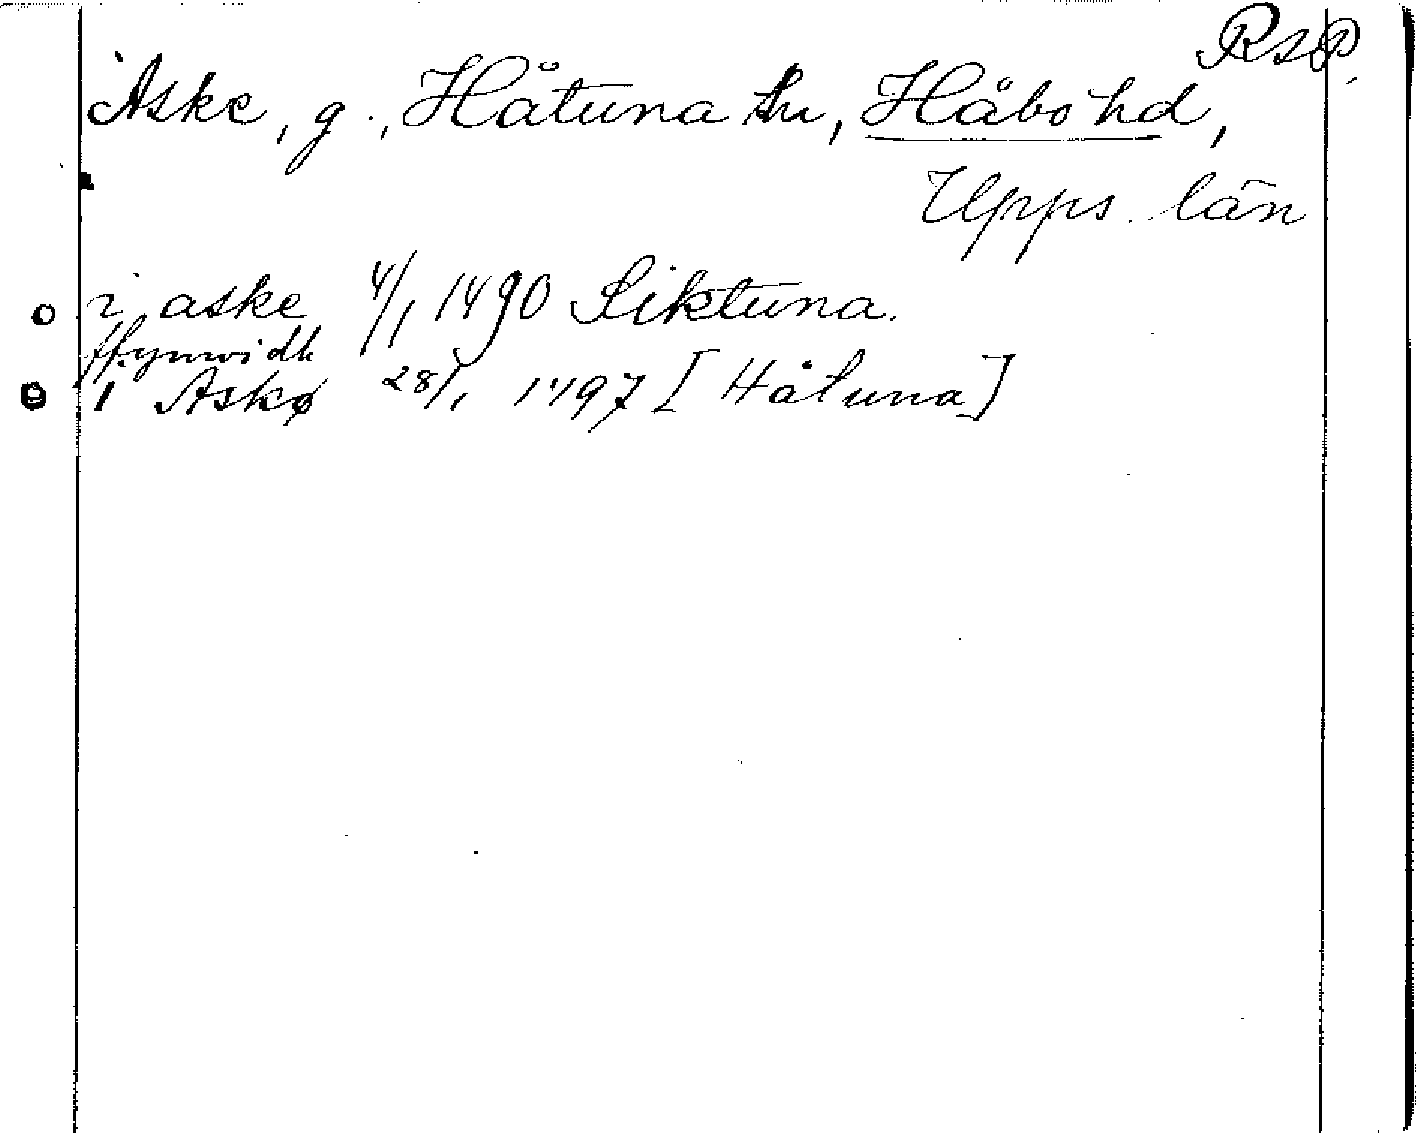 RAP.
Aske, g., Håtuna sn, Håbo hd,
Upps. län
i aske 4/1 1490 Siktuna.
ffynwidh
i Askø 28/1 1497 [Håtuna]